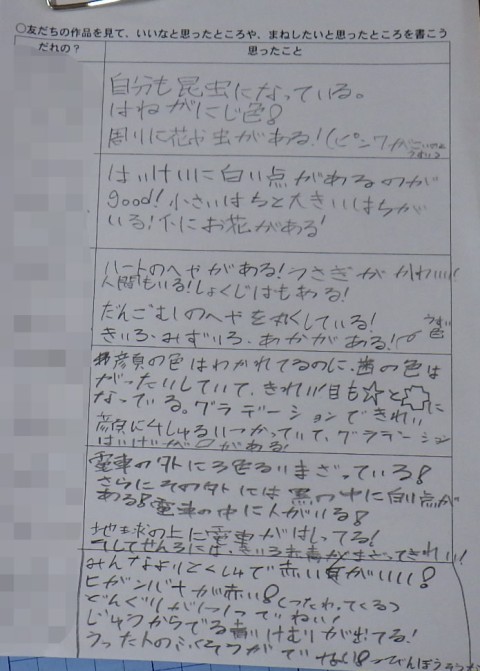 ○友だちの作品を見て、いいなと思ったところや、まねしたいと思ったところを書こう
だれの？ 思ったこと
自分も昆虫になっている。
はねがにじ色!
周りに花や虫がある!(ピンクが
はいけいに白い点があるのが
good!小さいはちと大きいはちが
いる!下にお花がある!
ハートのへやがある!うさぎがかわいい!
人間もいる!しょくじばもある!
だんごむしのへやを丸くしている!
きいろ・みずいろ・あかがある! うすい色
顔の色はわかれてるのに、歯の色は
がったいしていて、きれい!目も☆と
になっている。グラデーションできれい
顔に4しゅるいつかっていて、グラデーション
はいけいが がある!
電車の外に3色るいまざっている!
さらにその外には黒の中に白い点が
ある!電車の中に人がいる!
地球の上に電車がはしってる!
そしてせんろには、きいろ赤青がまざってきれい!
みんなよりとくしゅで赤い がいい!
ヒガンバナが赤い!(つたわってくる)
どんぐりが
じゅうからでる けむりが出てる!
うった人の